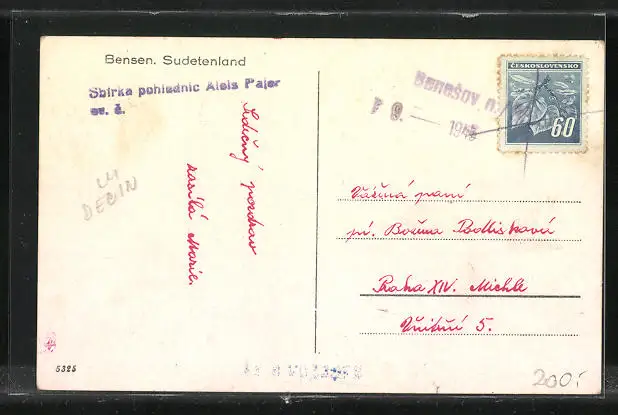 Bensen. Sudetenland
Sbírka pohlednic Alois Pajer
ev. č.
Srdečný pozdrav
zasílá Marie.
DEČIN
Benešov n.
9. — 1945
ČESKOSLOVENSKO
60
Vážená paní
pí. Božena Podlisková
Praha XIV. Michle
5.
5325
200.-